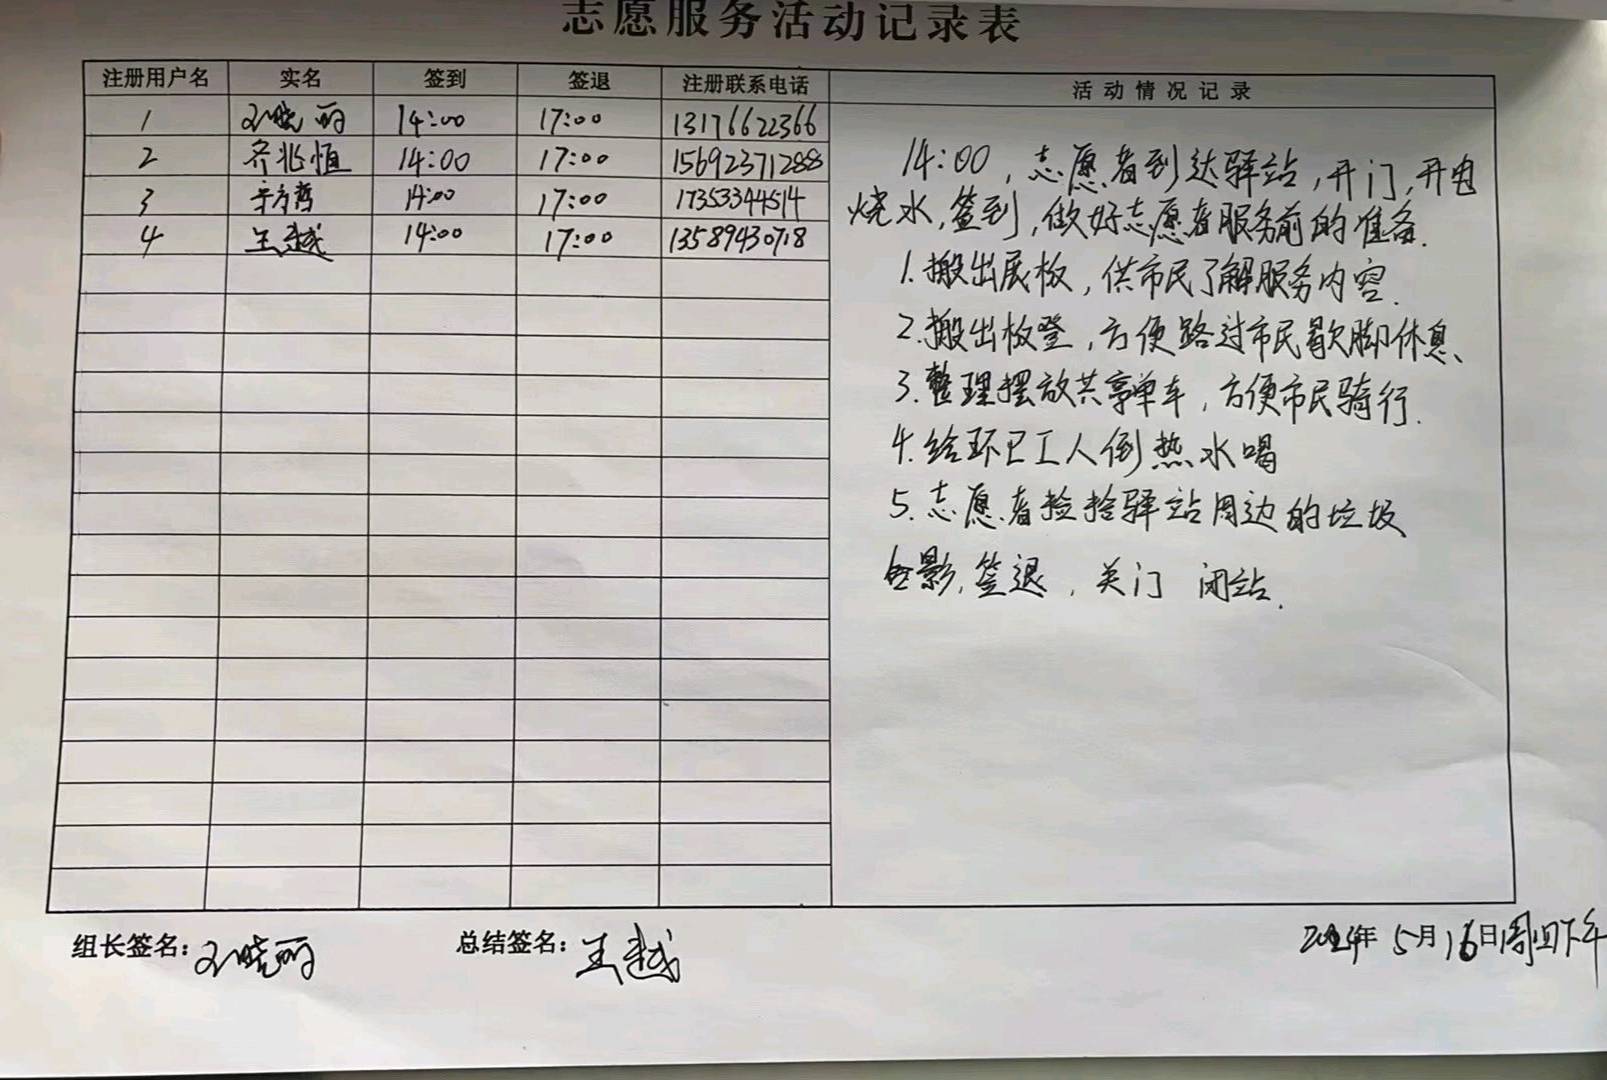 志愿服务活动记录表
注册用户名 实名 签到 签退 注册联系电话 活动情况记录
1 刘晓丽 14:00 17:00 13176622366
2 齐兆恒 14:00 17:00 15692371288
3 14:00 17:00 17353344514
4 王越 14:00 17:00 13589430718
14:00,志愿者到达驿站,开门,开电
烧水,签到,做好志愿者服务前的准备.
1.搬出展板,供市民了解服务内容.
2.搬出板登,方便路过市民歇脚休息、
3.整理摆放共享单车,方便市民骑行.
4.给环卫工人倒热水喝
5.志愿者捡捡驿站周边的垃圾
合影,签退,关门 闭站.
组长签名:刘晓丽 总结签名:王越 2024年5月16日周四下午